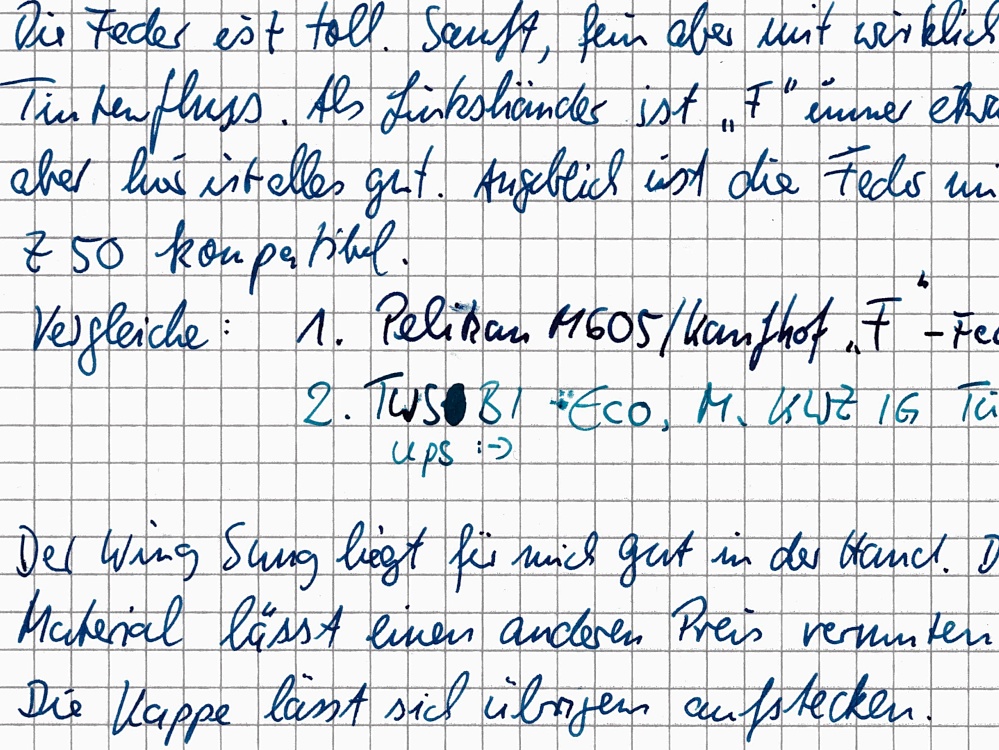 Die Feder ist toll. Sanft, fein aber mit wirklich
Tintenfluss. Als Linkshänder ist „F“ immer etwa
aber hier ist alles gut. Angeblich ist die Feder mi
Z 50 kompatibel.
Vergleiche: 1. Pelikan M605/Kaufhof „F“ - Fed
2. TWSBI Eco, M. KWZ IG Ti
ups :-)
Der Wing Sung liegt für mich gut in der Hand. D
Material lässt einen anderen Preis vermuten
Die Kappe lässt sich übrigens aufstecken.